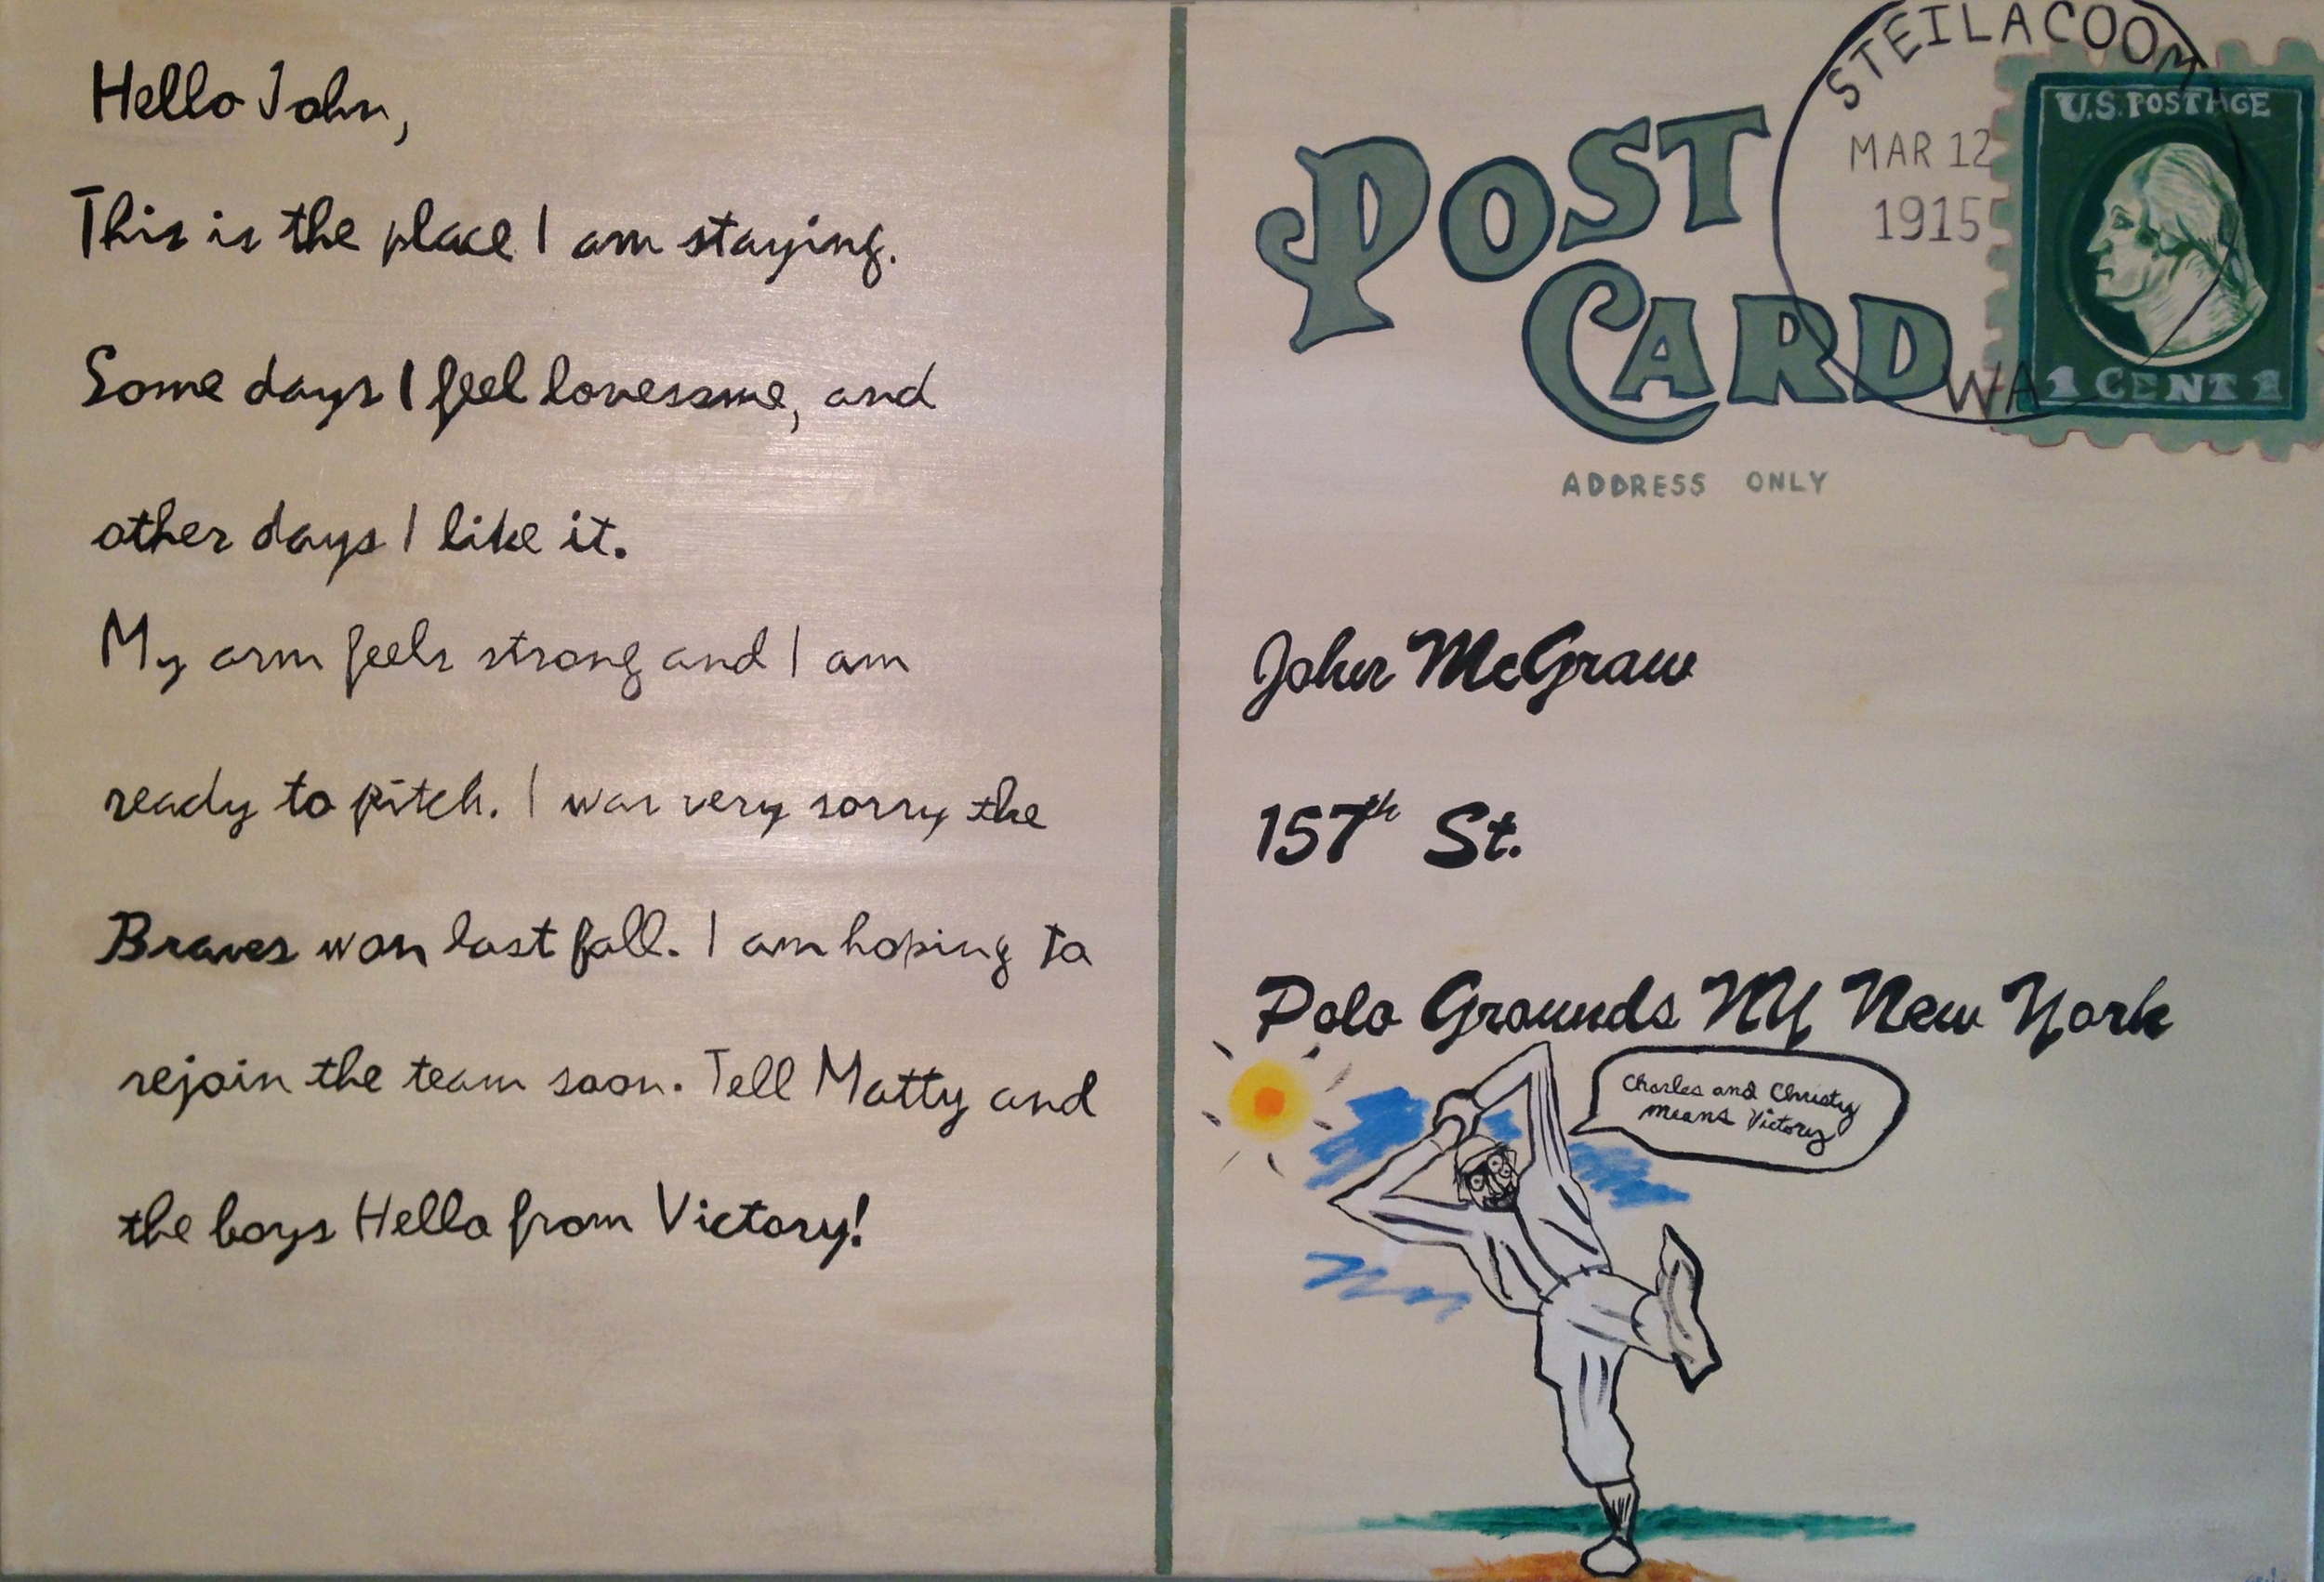 Hello John,
This is the place I am staying.
Some days I feel lonessme, and
other days I like it.
My arm feels strong and I am
ready to pitch. I was very sorry the
Braves won last fall. I am hoping to
rejoin the team soon. Tell Matty and
the boys Hello from Victory!
STEILACOOM
MAR 12
1915
WA
U.S. POSTAGE
1 CENT 1
POST
CARD
ADDRESS ONLY
John McGraw
157th St.
Polo Grounds NY New York
Charles and Christy
means Victory